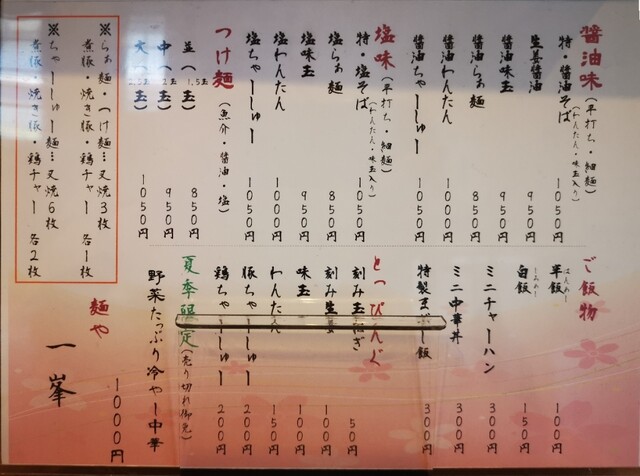 醤油味（平打ち・細麺）
特・醤油そば（わんたん・味玉入り） 1050円
生姜醤油 950円
醤油味玉 950円
醤油らぁ麺 850円
醤油わんたん 1000円
醤油ちゃーしゅー 1050円
塩味（平打ち・細麺）
特・塩そば（わんたん・味玉入り） 1050円
塩らぁ麺 850円
塩味玉 950円
塩わんたん 1000円
塩ちゃーしゅー 1050円
つけ麺（魚介・醤油・塩）
並（1.5玉） 850円
中（2玉） 950円
大（2.5玉） 1050円
※らぁ麺・つけ麺…叉焼3枚
煮豚・焼き豚・鶏チャー 各1枚
※ちゃーしゅー麺…叉焼6枚
煮豚・焼き豚・鶏チャー 各2枚
ご飯物
半飯 はんめー 100円
白飯 しろめー 150円
ミニチャーハン 300円
ミニ中華丼 300円
特製まぶし飯 300円
とっぴんぐ
刻み玉ねぎ 50円
刻み生姜 100円
味玉 100円
わんたん 150円
豚ちゃーしゅー 200円
鶏ちゃーしゅー 200円
夏季限定（売り切れ御免）
野菜たっぷり冷やし中華
1000円
麺や
一峯